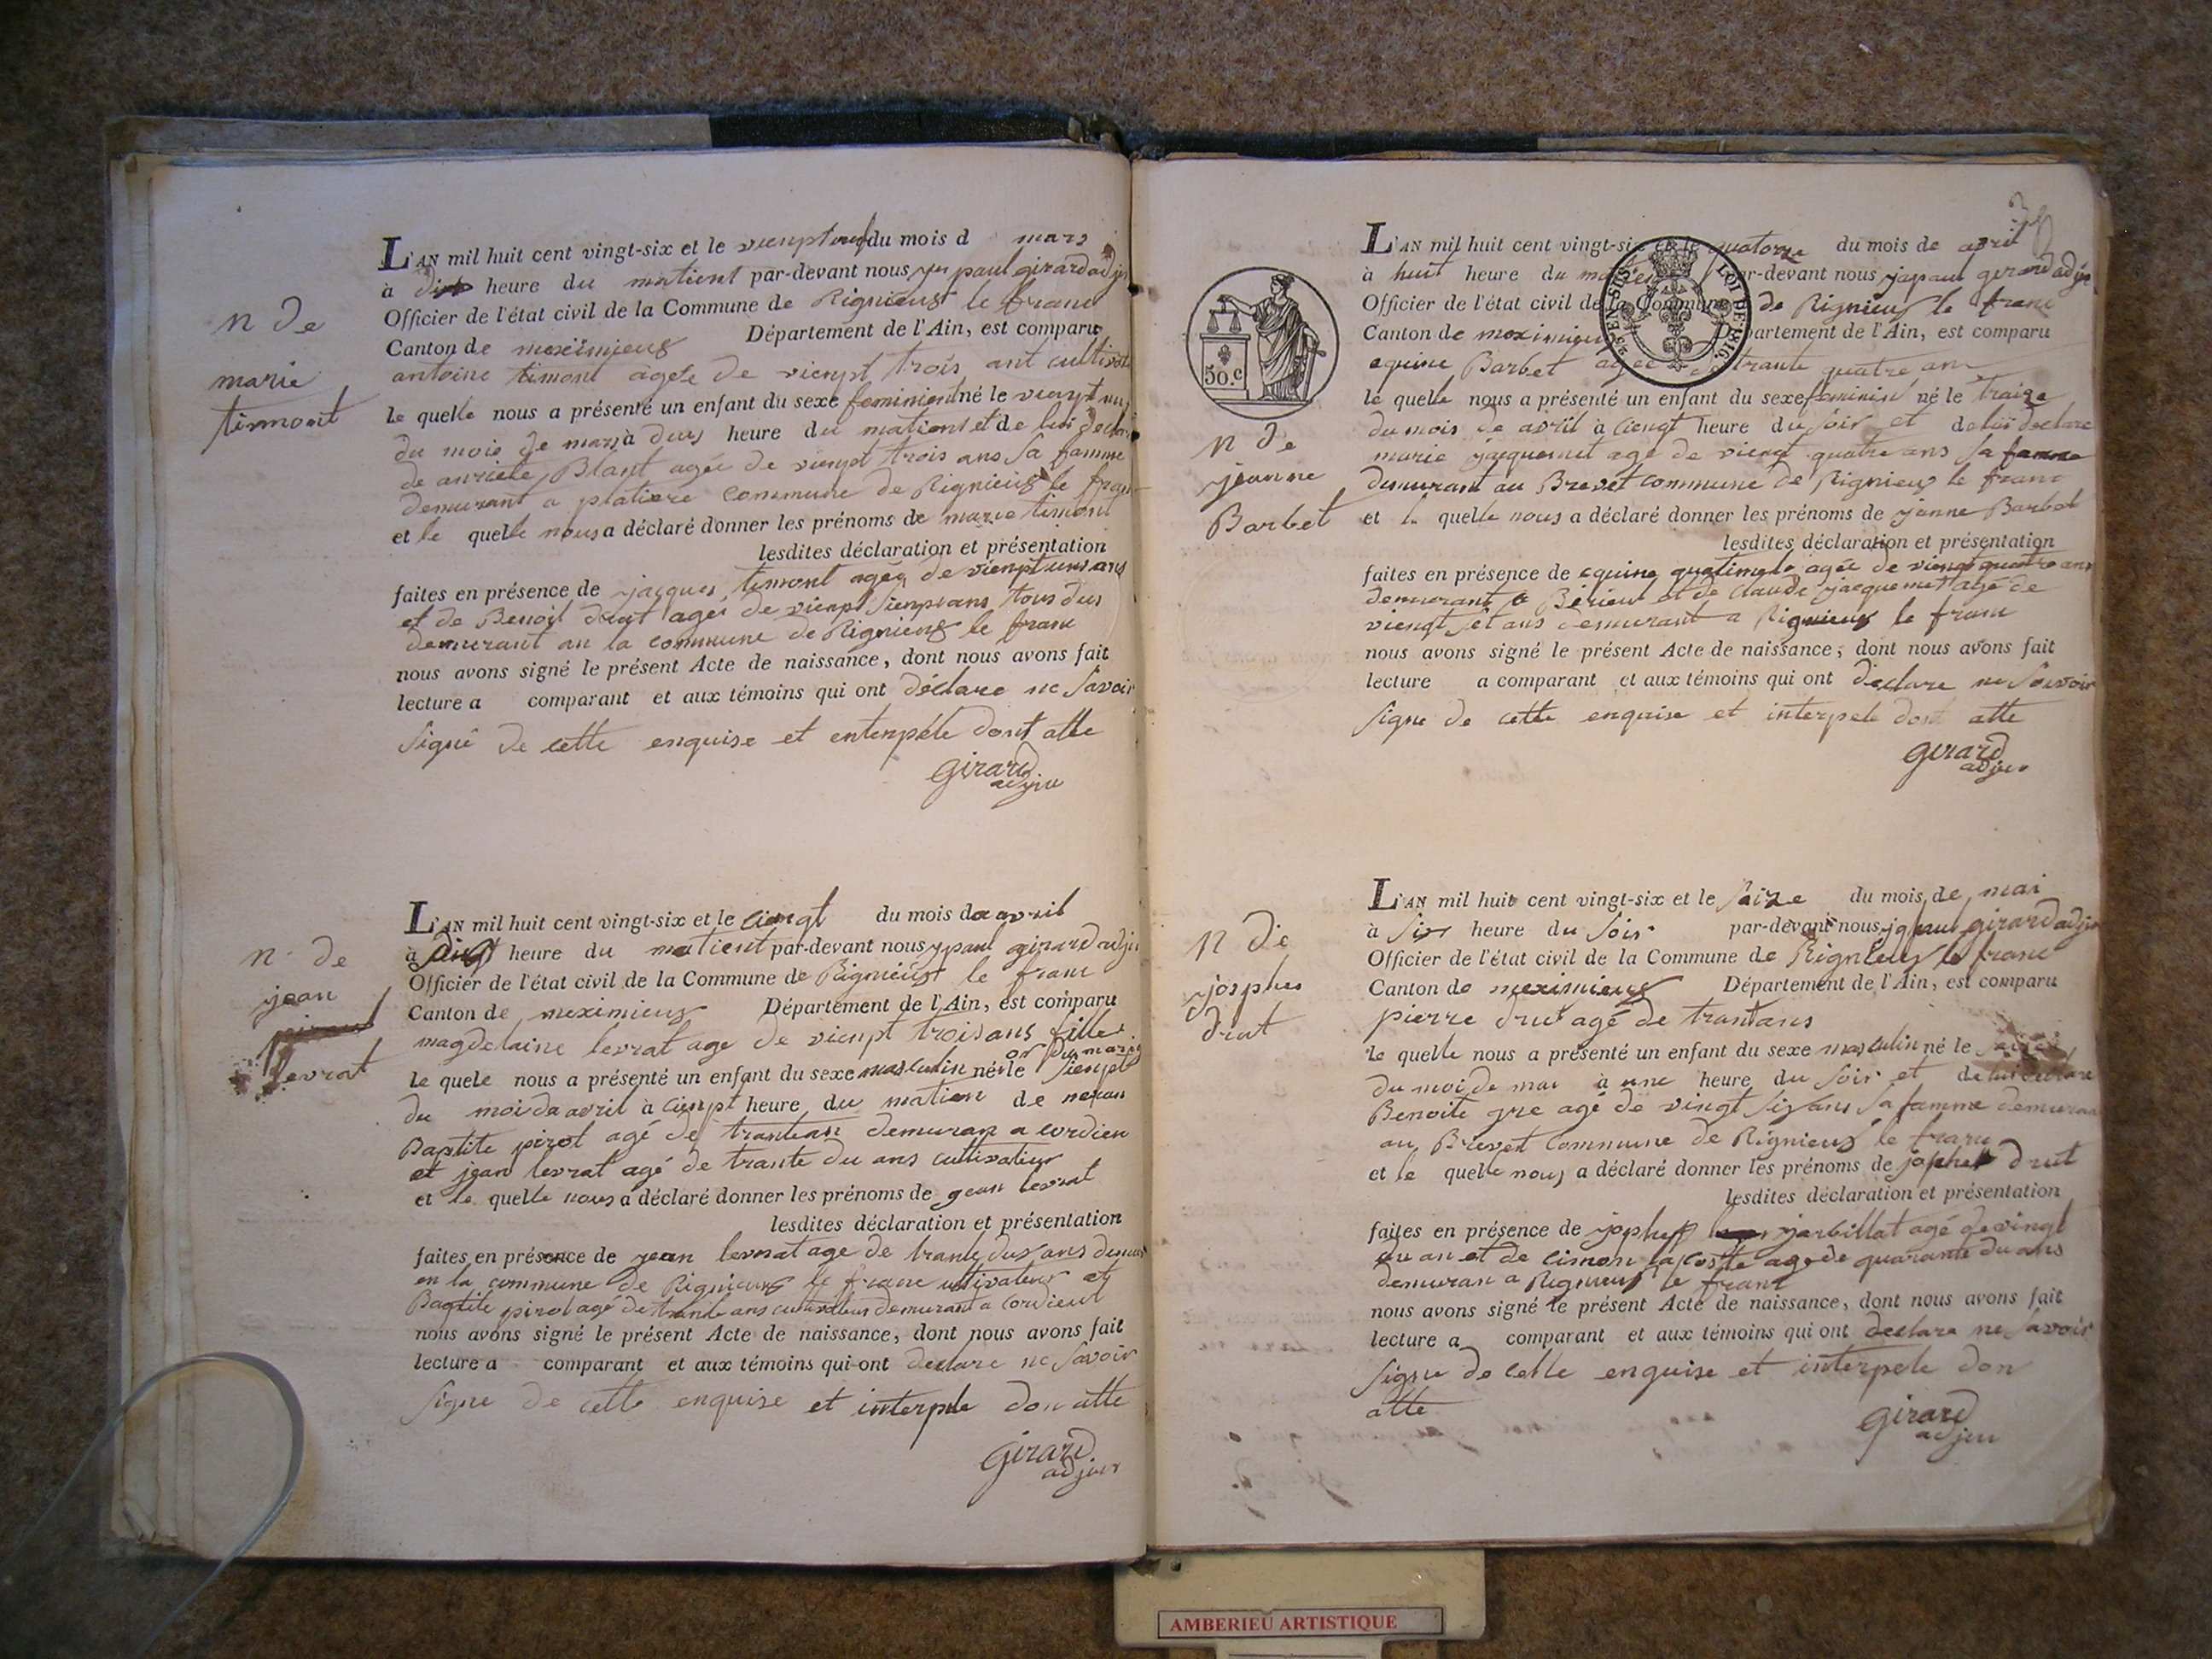 n de
marie
timont
L'AN mil huit cent vingt-six et le du mois d mars
à dix heure du matient par-devant nous paul girard adju
Officier de l'état civil de la Commune de Rignieux le franc
Canton de meximieux Département de l'Ain, est comparu
antoine timont agée de vienpt trois ant
le quelle nous a présenté un enfant du sexe feminient né le
du mois de mars à heure du matient et de lui
de Blant agée de vienpt trois ans sa famme
demurant a platiere commune de Rignieux le
et le quelle nous a déclaré donner les prénoms de marie timont
lesdites déclaration et présentation
faites en présence de jacques timont agée de
et de Benoit drut agée de vienpt ans tous dus
demurant an la commune de Rignieux le franc
nous avons signé le présent Acte de naissance, dont nous avons fait
lecture a comparant et aux témoins qui ont déclare ne savoir
signé de cette enquise et entenpéle dont atte
girard
adju
n de
jean
levrat
L'AN mil huit cent vingt-six et le ciengt du mois de avril
à heure du matient par-devant nous paul girard adju
Officier de l'état civil de la Commune de Rignieux le franc
Canton de meximieux Département de l'Ain, est comparu
magdelaine levrat age de vienpt trois ans fille
le quele nous a présenté un enfant du sexe masculin né le
du moi de avril à cienpt heure du matien de
Baptite pirot agé de demuran a cordieu
et jean levrat agé de trante du ans cultivateur
et le quelle nous a déclaré donner les prénoms de gean levrat
lesdites déclaration et présentation
faites en présence de jean levrat age de trante dus ans
en la commune de Rignieux le franc cultivateur et
Baptite pirot agé de trante ans cultivateur demurant a cordieux
nous avons signé le présent Acte de naissance, dont nous avons fait
lecture a comparant et aux témoins qui ont declare ne savoir
signe de cette enquise et interpele don atte
girard
adjur
50.c
LOI DE 1816.
n de
jeanne
Barbet
L'AN mil huit cent vingt-six et le quatorze du mois de avril
à huit heure du par-devant nous paul girard adju
Officier de l'état civil de la Commune de Rignieux le franc
Canton de meximieux Département de l'Ain, est comparu
equine Barbet agée de trante quatre an
le quelle nous a présenté un enfant du sexe feminint né le traize
du mois de avril à ciengt heure du soir et de lui declare
marie jacquemet age de viengt quatre ans sa famme
demurant au Brevet commune de Rignieux le franc
et le quelle nous a déclaré donner les prénoms de janne Barbet
lesdites déclaration et présentation
faites en présence de equine agée de viengt quatre ans
demurant a et de claude jacquemet age de
viengt set ans demurant a Rignieux le franc
nous avons signé le présent Acte de naissance, dont nous avons fait
lecture a comparant et aux témoins qui ont declare ne savoir
signe de cette enquise et interpele dont atte
girard
adju
n de
josphes
drut
L'AN mil huit cent vingt-six et le saize du mois de mai
à six heure du soir par-devant nous paul girard adju
Officier de l'état civil de la Commune de Rignieux le franc
Canton de meximieux Département de l'Ain, est comparu
pierre drut agé de trantans
le quelle nous a présenté un enfant du sexe masculin né le
du moi de mai à une heure du soir et de lui declare
Benoite gre agé de vingt six ans sa famme demuran
au Brevet commune de Rignieux le franc
et le quelle nous a déclaré donner les prénoms de josphet drut
lesdites déclaration et présentation
faites en présence de josphes jarbillat agé de vingt
du an et de cimon lacoste age de quarante du ans
demuran a Rignieux le franc
nous avons signé le présent Acte de naissance, dont nous avons fait
lecture a comparant et aux témoins qui ont declare ne savoir
signe de cette enquise et interpele don
atte
girard
adju
AMBERIEU ARTISTIQUE